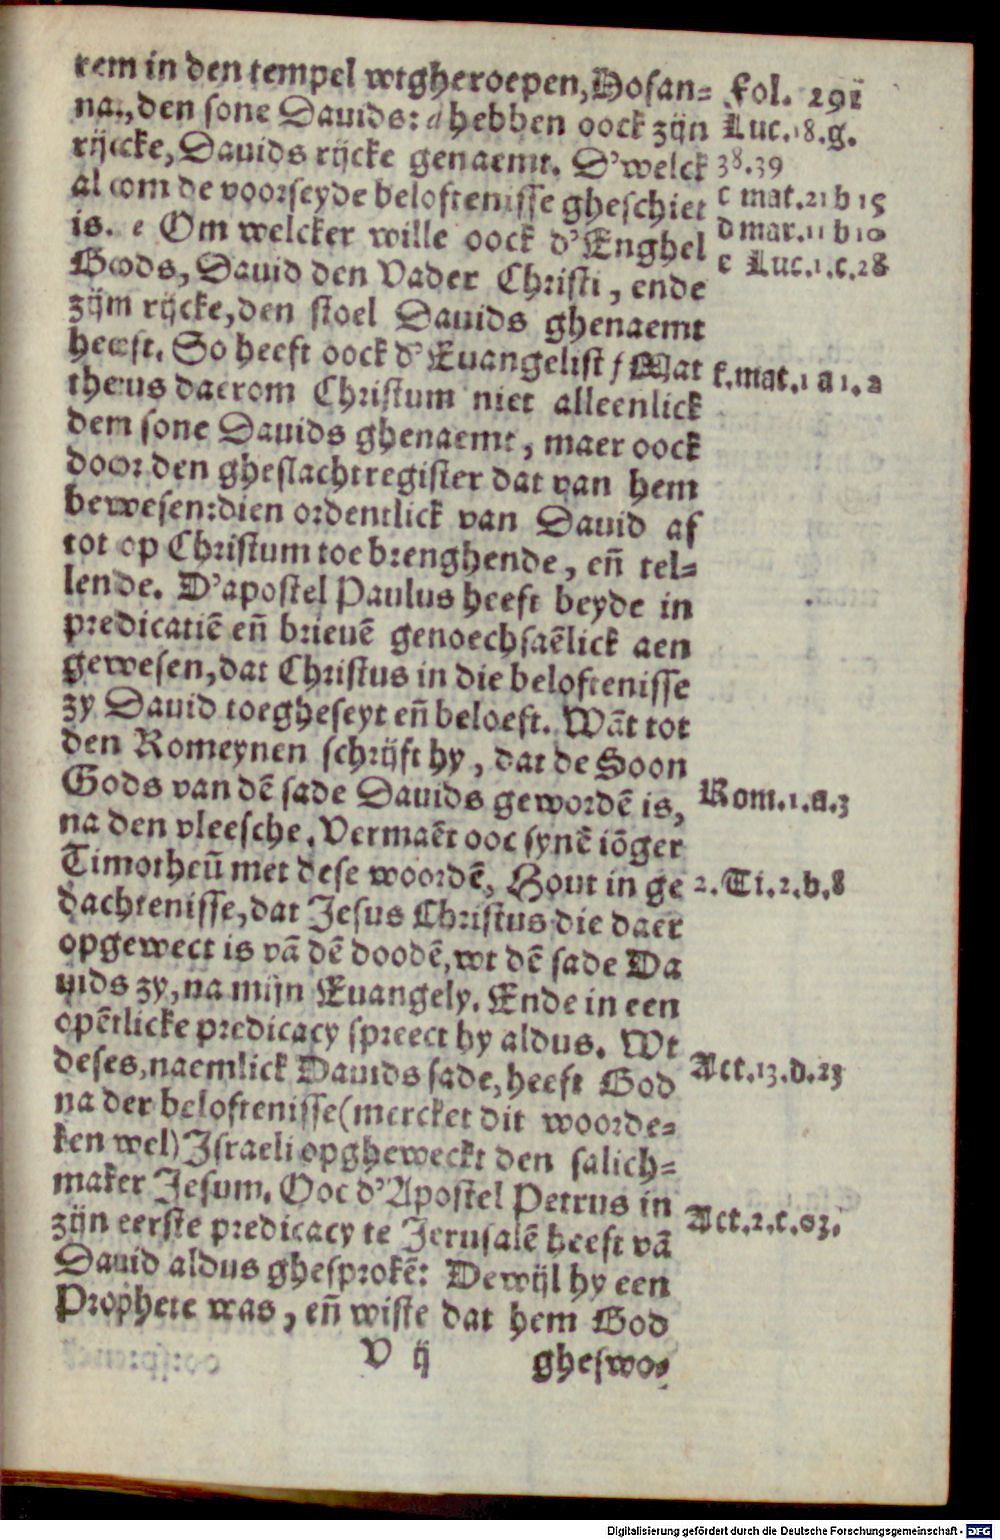 rem in den tempel wtgheroepen, Hosan=
na, den sone Dauids: d hebben oock zijn
rijcke, Dauids rijcke genaemt. D'welck
al om de voorseyde beloftenisse gheschiet
is. e Om welcker wille oock d'Enghel
Gods, Dauid den Vader Christi, ende
zijn rijcke, den stoel Dauids ghenaemt
heeft. So heeft oock d'Euangelist f Mat
theus daerom Christum niet alleenlick
dem sone Dauids ghenaemt, maer oock
door den gheslachtregister dat van hem
bewesen: dien ordentlick van Dauid af
tot op Christum toe brenghende, eñ tel=
lende. D'apostel Paulus heeft beyde in
predicatiē eñ brieuē genoechsaēlick aen
gewesen, dat Christus in die beloftenisse
zy Dauid toegheseyt eñ beloeft. Wāt tot
den Romeynen schrijft hy, dat de Soon
Gods van dē sade Dauids gewordē is,
na den vleesche. Vermaēt ooc synē iōger
Timotheū met dese woordē, Hout in ge
dachtenisse, dat Jesus Christus die daer
opgewect is vā dē doodē, wt dē sade Da
uids zy, na mijn Euangely. Ende in een
opētlicke predicacy spreect hy aldus. Wt
deses, naemlick Dauids sade, heeft God
na der beloftenisse (mercket dit woorde=
ken wel) Israeli opgheweckt den salich=
maker Jesum. Ooc d'Apostel Petrus in
zijn eerste predicacy te Jerusalē heeft vā
Dauid aldus ghesprokē: Dewijl hy een
Prophete was, eñ wiste dat hem God
V ij gheswo=
fol. 291
Luc. 18. g.
38. 39
c mat. 21 b 15
d mar. 11 b 10
e Luc. 1. c. 28
f. mat. 1 a 1. a
Rom. 1. a. 3
2. Ti. 2. b. 8
Act. 13. d. 23
Act. 2. c. 03.
Digitalisierung gefördert durch die Deutsche Forschungsgemeinschaft - DFG